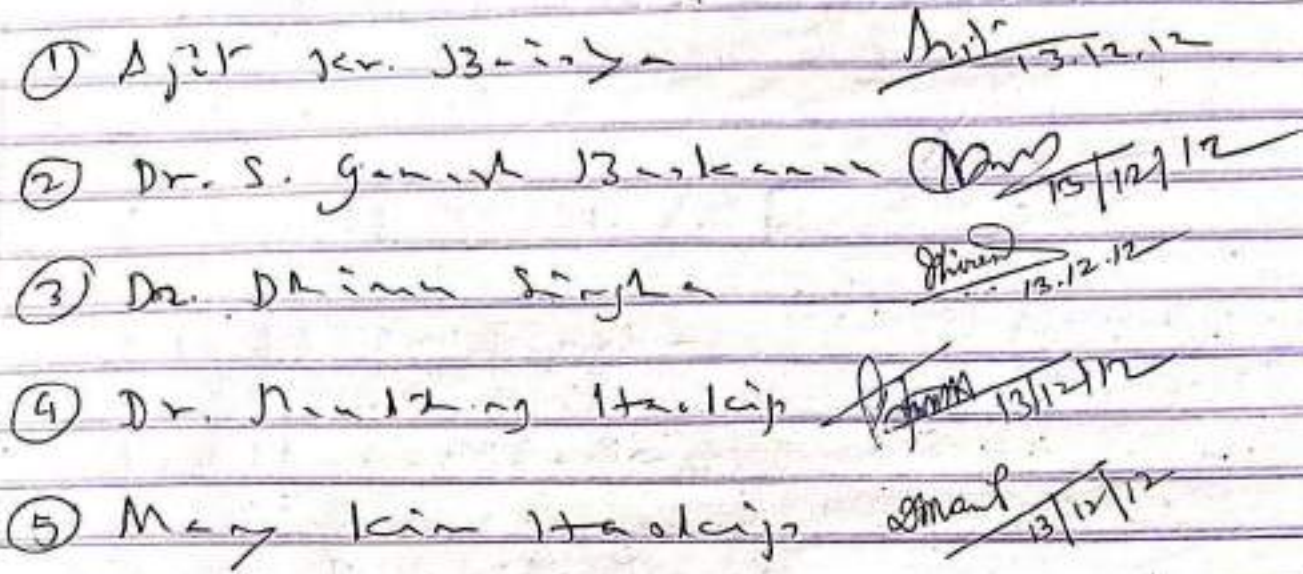 ① Ajit Kr. Baishya Ajit 13.12.12
② Dr. S. Ganesh Baskaran 13/12/12
③ Dr. Dhiren Singha Dhiren 13.12.12
④ Dr. Haokip 13/12/12
⑤ Mary Kim Haokip 13/12/12